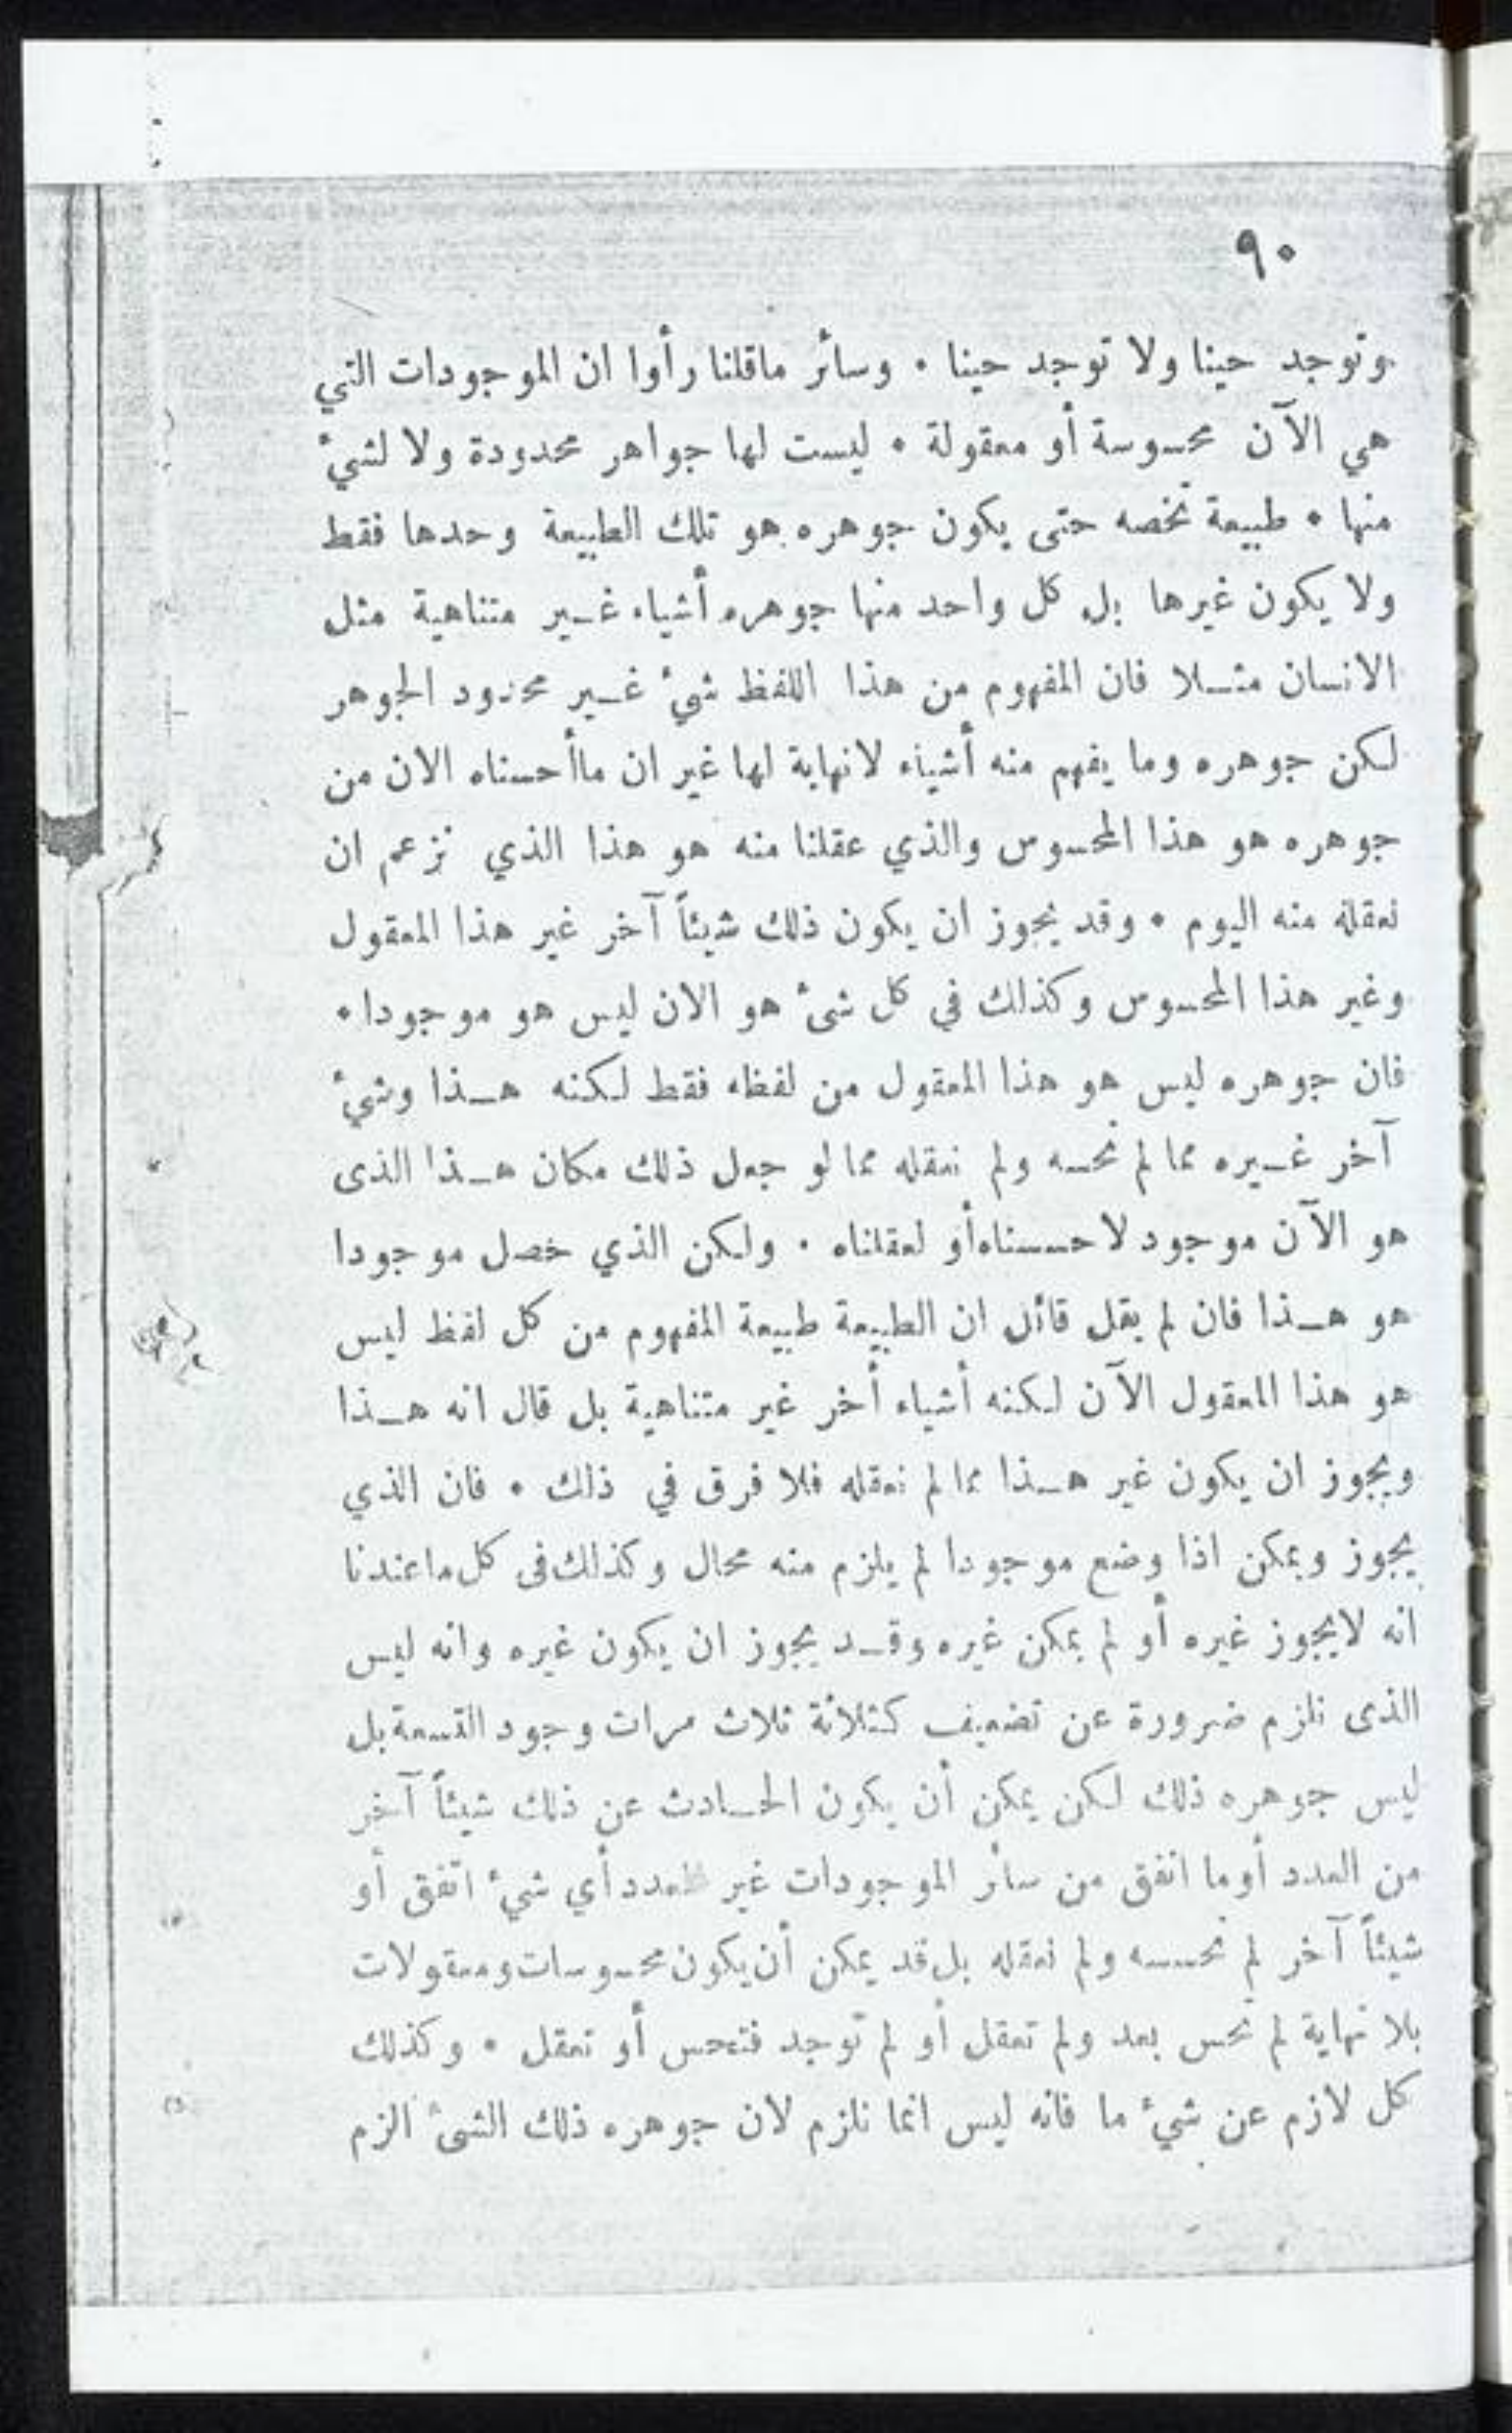 ٩٠
وتوجد حينا ولا توجد حينا • وسائر ماقلنا رأوا ان الموجودات التي
هي الآن محسوسة أو معقولة • ليست لها جواهر محدودة ولا لشيء
منها • طبيعة تخصه حتى يكون جوهره هو تلك الطبيعة وحدها فقط
ولا يكون غيرها بل كل واحد منها جوهره أشياء غير متناهية مثل
الانسان مثلا فان المفهوم من هذا اللفظ شيء غير محدود الجوهر
لكن جوهره وما يفهم منه أشياء لانهاية لها غير ان ماأحسناه الان من
جوهره هو هذا المحسوس والذي عقلنا منه هو هذا الذي نزعم ان
نعقله منه اليوم • وقد يجوز ان يكون ذلك شيئاً آخر غير هذا المعقول
وغير هذا المحسوس وكذلك في كل شيء هو الان ليس هو موجودا •
فان جوهره ليس هو هذا المعقول من لفظه فقط لكنه هذا وشيء
آخر غيره مما لم نحسه ولم نعقله مما لو جعل ذلك مكان هذا الذى
هو الآن موجود لاحسسناه أو لعقلناه • ولكن الذي حصل موجودا
هو هذا فان لم يقل قائل ان الطبيعة طبيعة المفهوم من كل لفظ ليس
هو هذا المعقول الآن لكنه أشياء أخر غير متناهية بل قال انه هذا
ويجوز ان يكون غير هذا مما لم نعقله فلا فرق في ذلك • فان الذي
يجوز ويمكن اذا وضع موجودا لم يلزم منه محال وكذلك فى كل ماعندنا
انه لايجوز غيره أو لم يمكن غيره وقد يجوز ان يكون غيره وانه ليس
الذى تلزم ضرورة عن تضعيف كثلاثة ثلاث مرات وجود التسعة بل
ليس جوهره ذلك لكن يمكن أن يكون الحادث عن ذلك شيئاً آخر
من العدد أو ما اتفق من سائر الموجودات غير العدد أي شيء اتفق أو
شيئاً آخر لم نحسسه ولم نعقله بل قد يمكن أن يكون محسوسات ومعقولات
بلا نهاية لم تحس بعد ولم تعقل أو لم توجد فتحس أو تعقل • وكذلك
كل لازم عن شيء ما فانه ليس انما تلزم لان جوهره ذلك الشىء الزم